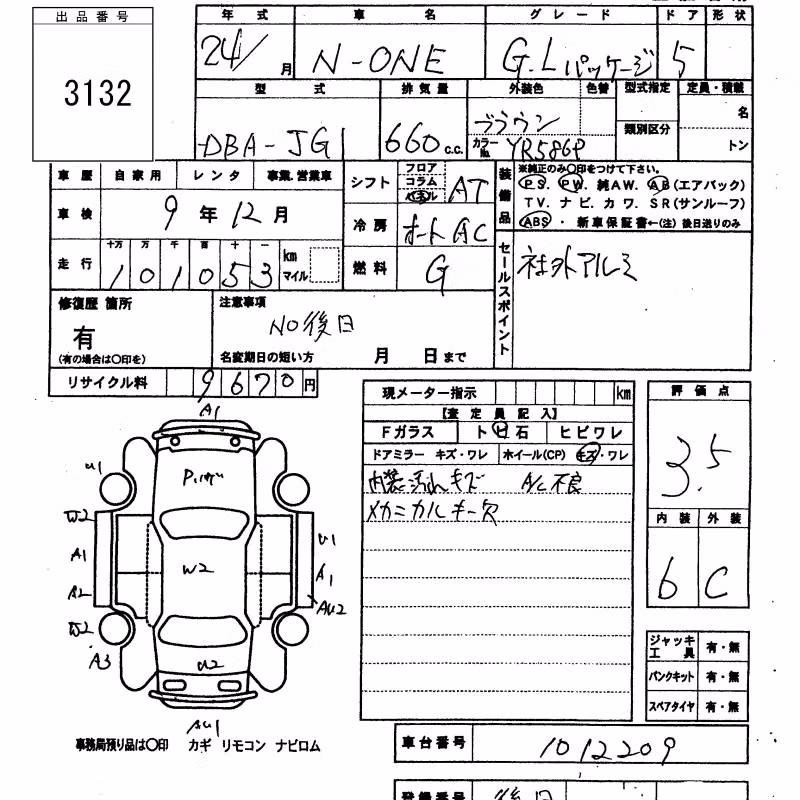 出品番号
3132
年式 車名 グレード ドア 形状
24/ 月 N-ONE G.Lパッケージ 5
型式 排気量 外装色 色替 型式指定 定員・積載
DBA-JG1 660 c.c. ブラウン 類別区分 名
カラーNo. YR586P トン
車歴 自家用 レンタ 事業.営業車
車検 9年12月
走行 十万 万 千 百 十 一
101053 km マイル
シフト フロア コラム パネル AT
冷房 オートAC
燃料 G
装備品
※純正のみ○印をつけて下さい。
PS. PW. 純AW. AB(エアバック)
TV. ナビ. カワ. SR(サンルーフ)
ABS・新車保証書←(注)後日送りのみ
セールスポイント
社外アルミ
修復歴 箇所
有
(有の場合は○印を)
注意事項
NO後日
名変期日の短い方 月 日まで
リサイクル料 9670円
現メーター指示 km
【査定員記入】
Fガラス トビ石 ヒビワレ
ドアミラー キズ・ワレ ホイール(CP) キズ・ワレ
内装汚れキズ A/C不良
メカニカルキー欠
評価点
3.5
内装 外装
6 C
ジャッキ工具 有・無
パンクキット 有・無
スペアタイヤ 有・無
A1
U1
W2
A1
A2
W2
A3
W2
U2
U1
A1
AU2
AU1
事務局預り品は○印 カギ リモコン ナビロム
車台番号 1012209
登録番号 後日